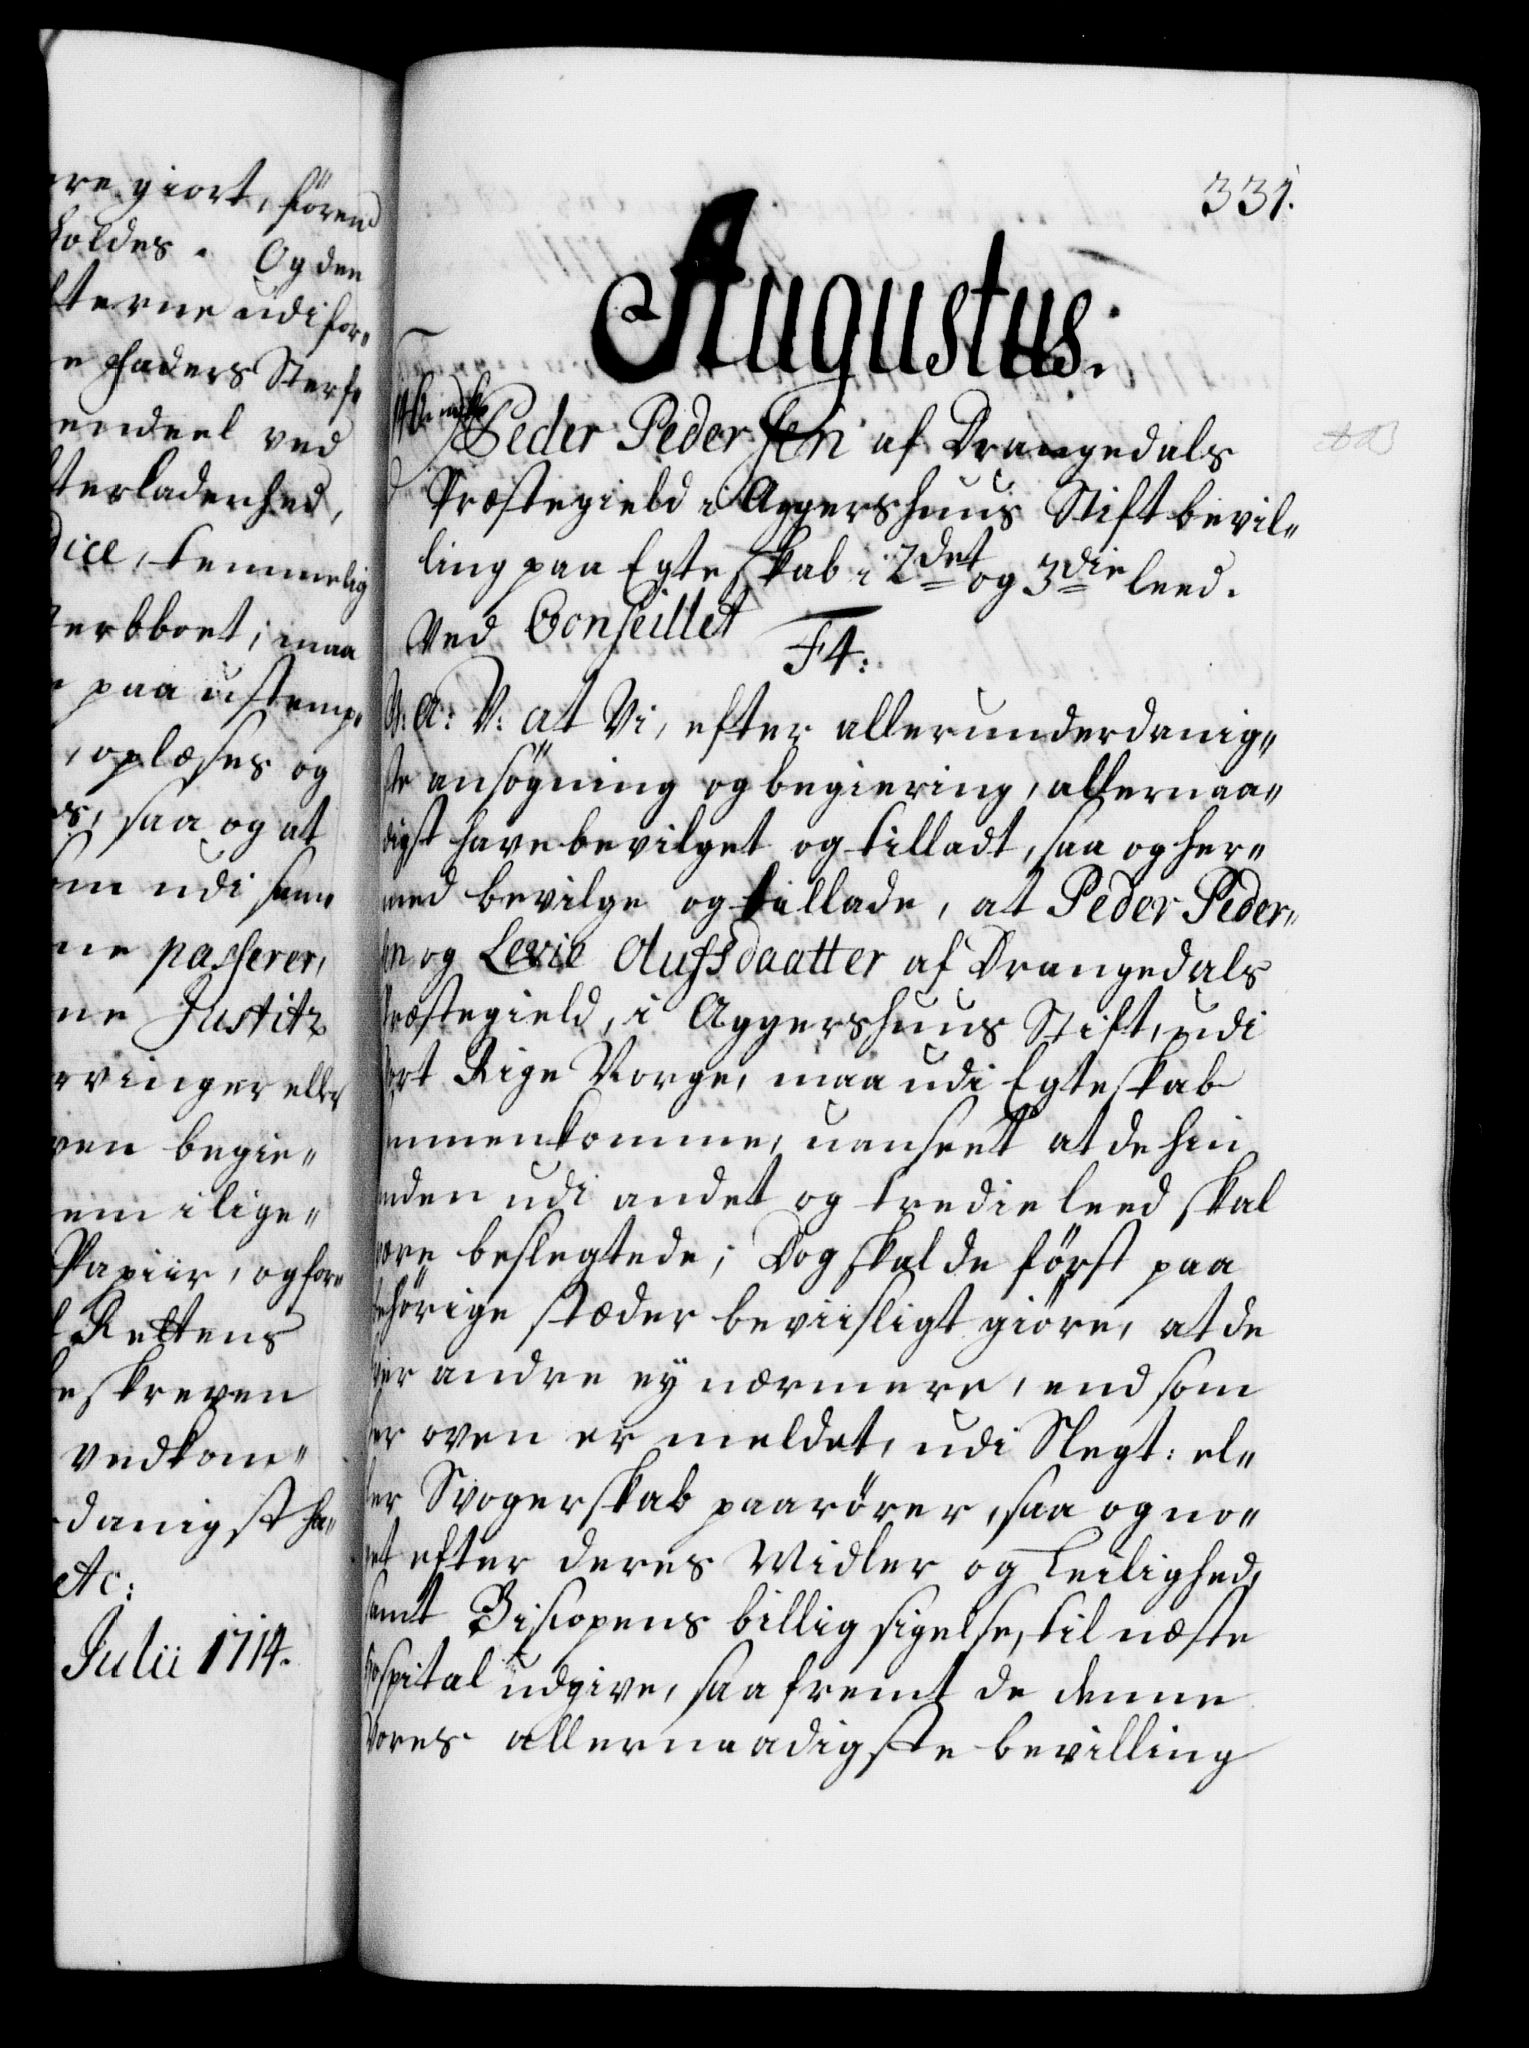 re giort, förend
holdes. Og den
fterne udi for-
e Faders Sterf-
endeel ved
fterladenhed,
dice, temmelig
erbboet; maa
paa ustemp-
, oplæses og
s, saa og at
m udi sam-
ne passerer,
ne Justitz
rvinger eller
ven begie-
em i lige-
Papiir, og for-
Rettens
beskreven
vedkom-
danigst ha-
etc:
Julii 1714.
331.
Augustus.
Peder Pedersen af Drangedals
Præstegield i Aggershuus Stift bevil-
ling paa Egteskab i 2det og 3die leed.
Ved Conseillet
F4:
V: A: V: at Vi, efter allerunderdanig-
ste ansögning og begiering, allernaa-
digst have bevilget og tilladt, saa og her-
med bevilge og tillade, at Peder Peder-
sen og Levie Olufsdaatter af Drangedals
Præstegield, i Aggershuus Stift, udi
Vort Rige Norge, maa udi Egteskab
sammenkomme, uanseet at de hin
anden udi andet og tredie leed skal
være beslegtede; Dog skal de först paa
behörige stæder beviisligt giöre, at de
hver andre ey nærmere, end som
her oven er meldet, udi Slegt: el-
ler Svogerskab paarörer, saa og no-
get efter deres Midler og Leilighed,
samt Biscopens billig sigelse, til næste
Hospital udgive, saa fremt de denne
Vores allernaadigste bevilling